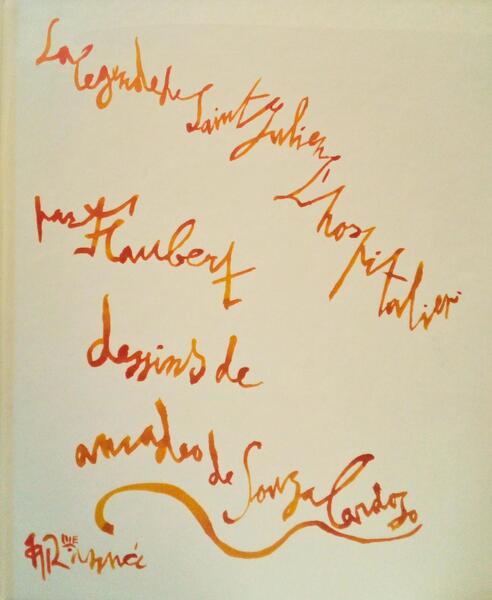 La Legende de
Saint Julien
L'hospitalier
par Flaubert
dessins de
amadeo de Souza Cardoso